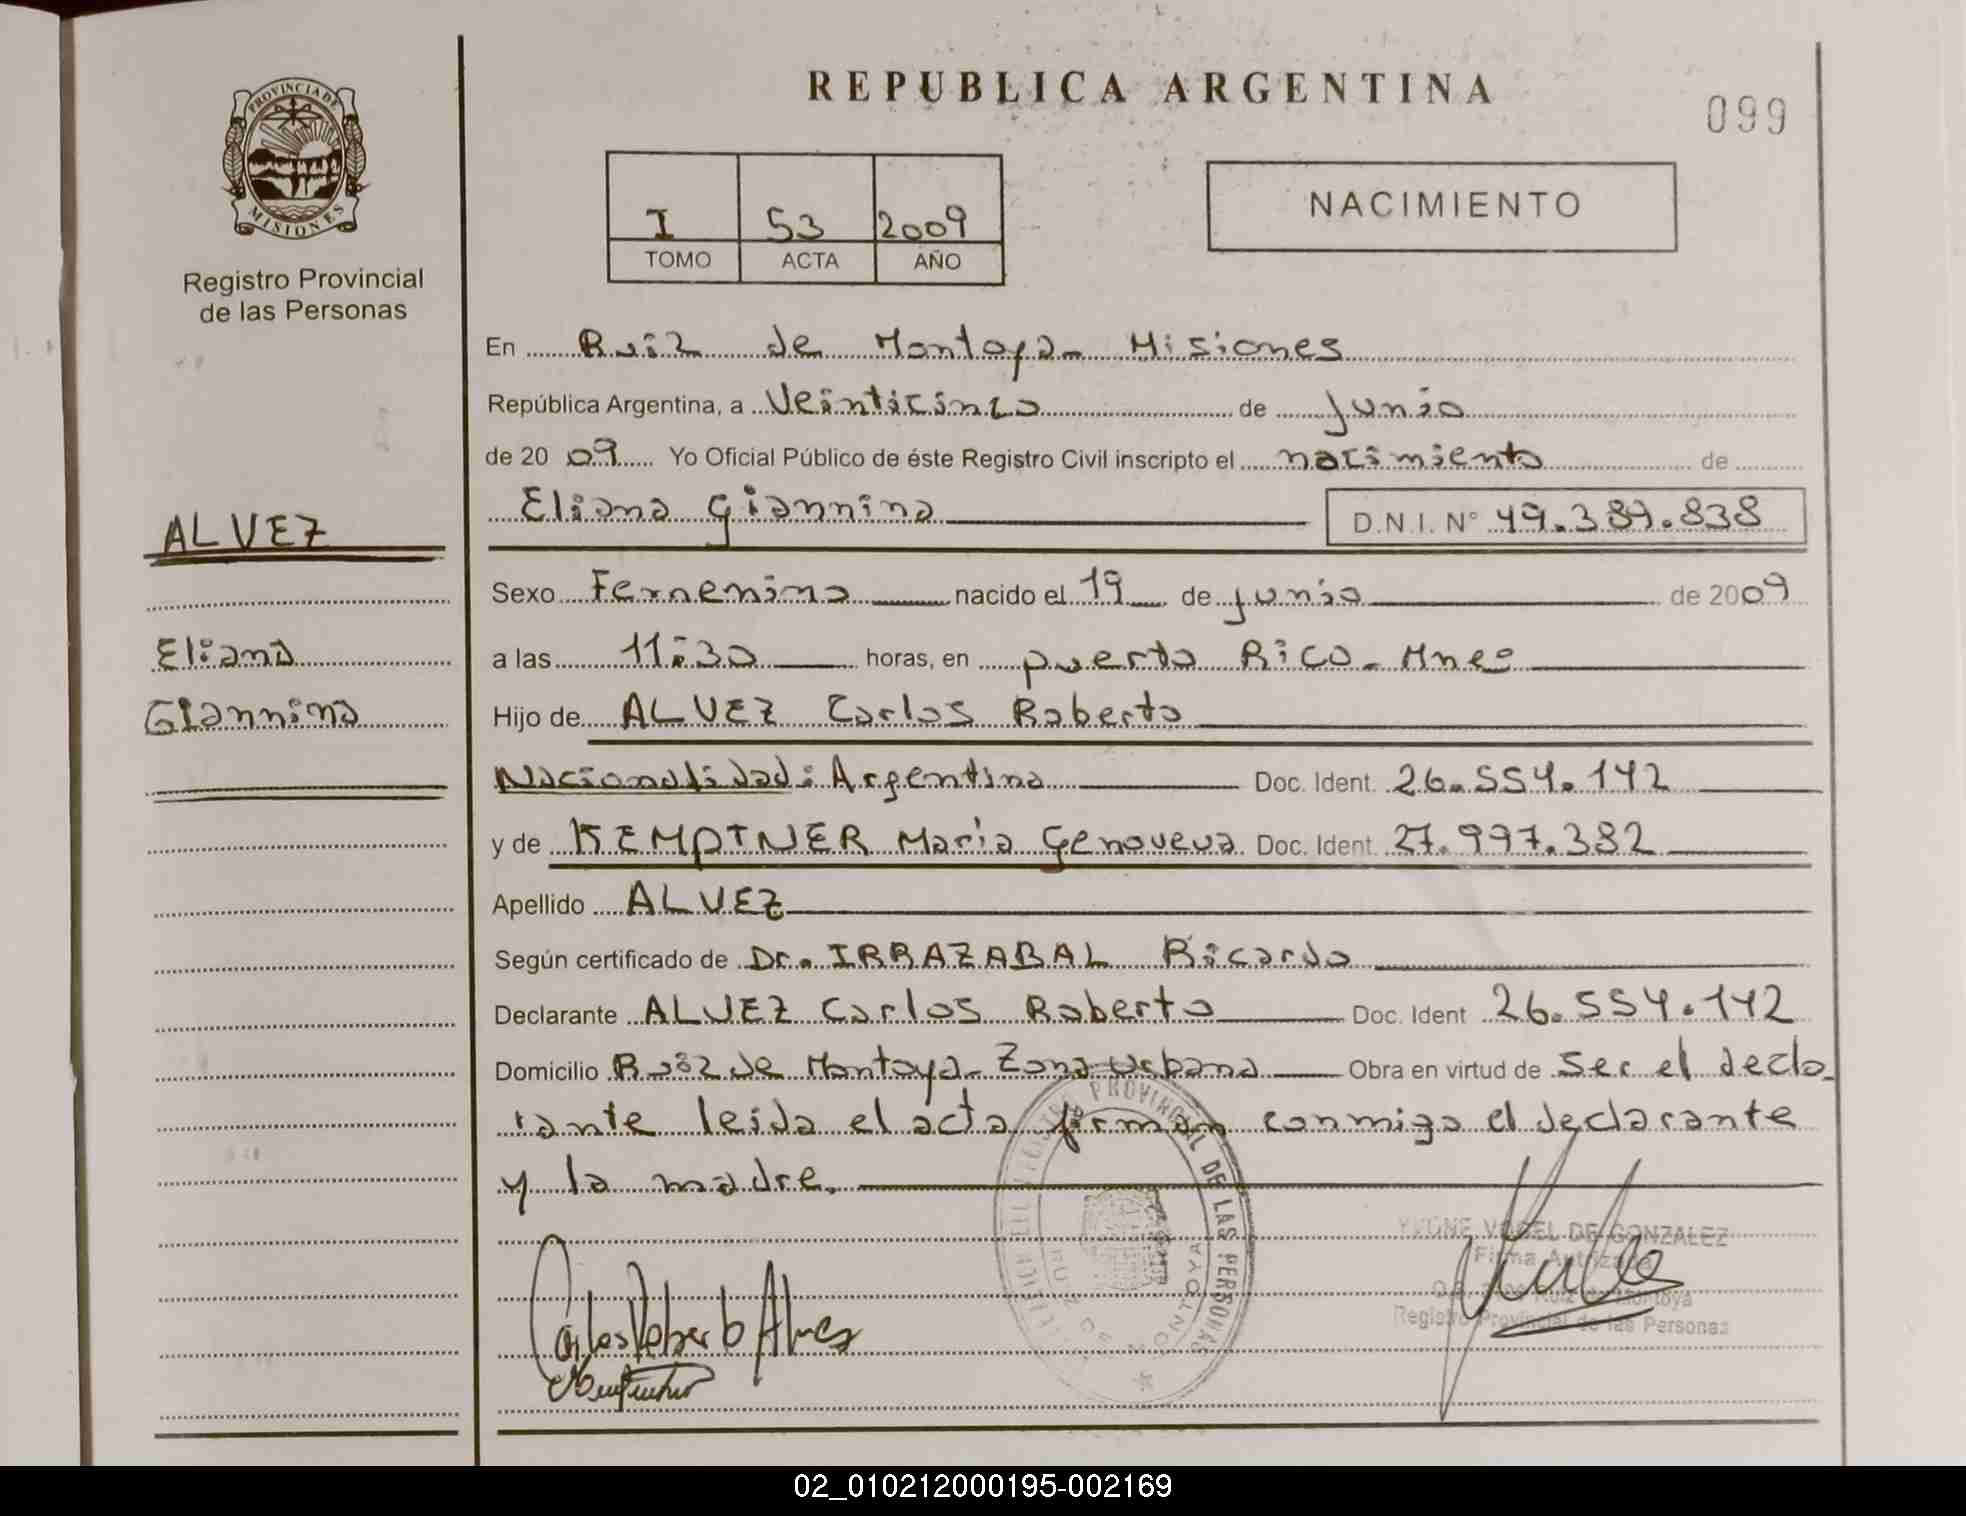 PROVINCIA DE
MISIONES
Registro Provincial
de las Personas
ALVEZ
Eliana
Giannina
REPUBLICA ARGENTINA
099
I 53 2009
TOMO ACTA AÑO
NACIMIENTO
En Ruiz de Montoya - Misiones
República Argentina, a Veinticinco de junio
de 2009 Yo Oficial Público de éste Registro Civil inscripto el nacimiento de
Eliana Giannina D.N.I. N° 49.389.838
Sexo Femenino nacido el 19 de junio de 2009
a las 11:30 horas, en puerto Rico - Mnes
Hijo de ALVEZ Carlos Roberto
Nacionalidad: Argentina Doc. Ident. 26.554.142
y de KEMPTNER Maria Genoveva Doc. Ident. 27.997.382
Apellido ALVEZ
Según certificado de Dr. IRRAZABAL Ricardo
Declarante ALVEZ Carlos Roberto Doc. Ident 26.554.142
Domicilio Ruiz de Montoya - Zona Urbana Obra en virtud de ser el decla-
rante leida el acta firman conmigo el declarante
y la madre.
PROVINCIAL DE LAS PERSONAS
RUIZ DE MONTOYA
Carlos Roberto Alvez
YVONE VOGEL DE GONZALEZ
Firma Autorizada
Ruiz de Montoya
Registro Provincial de las Personas
02_010212000195-002169